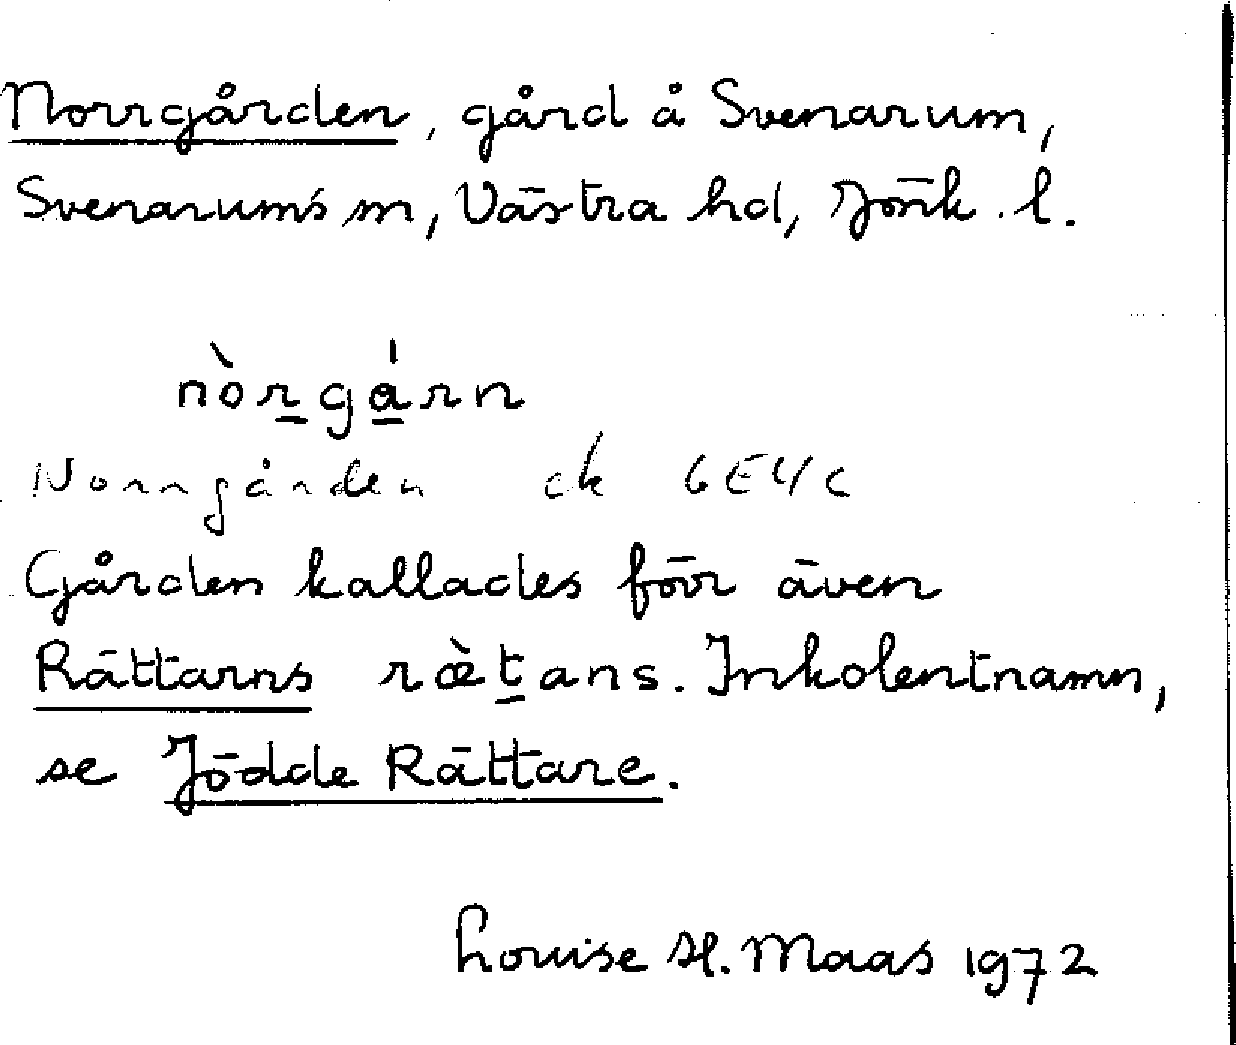 Norrgården, gård å Svenarum,
Svenarums sn, Västra hd, Jönk. l.
nòrgárn
Norrgården ek 6E4c
Gården kallades förr även
Rättarns ræ̀tans. Inkolentnamn,
se Jödde Rättare.
Louise H. Maas 1972